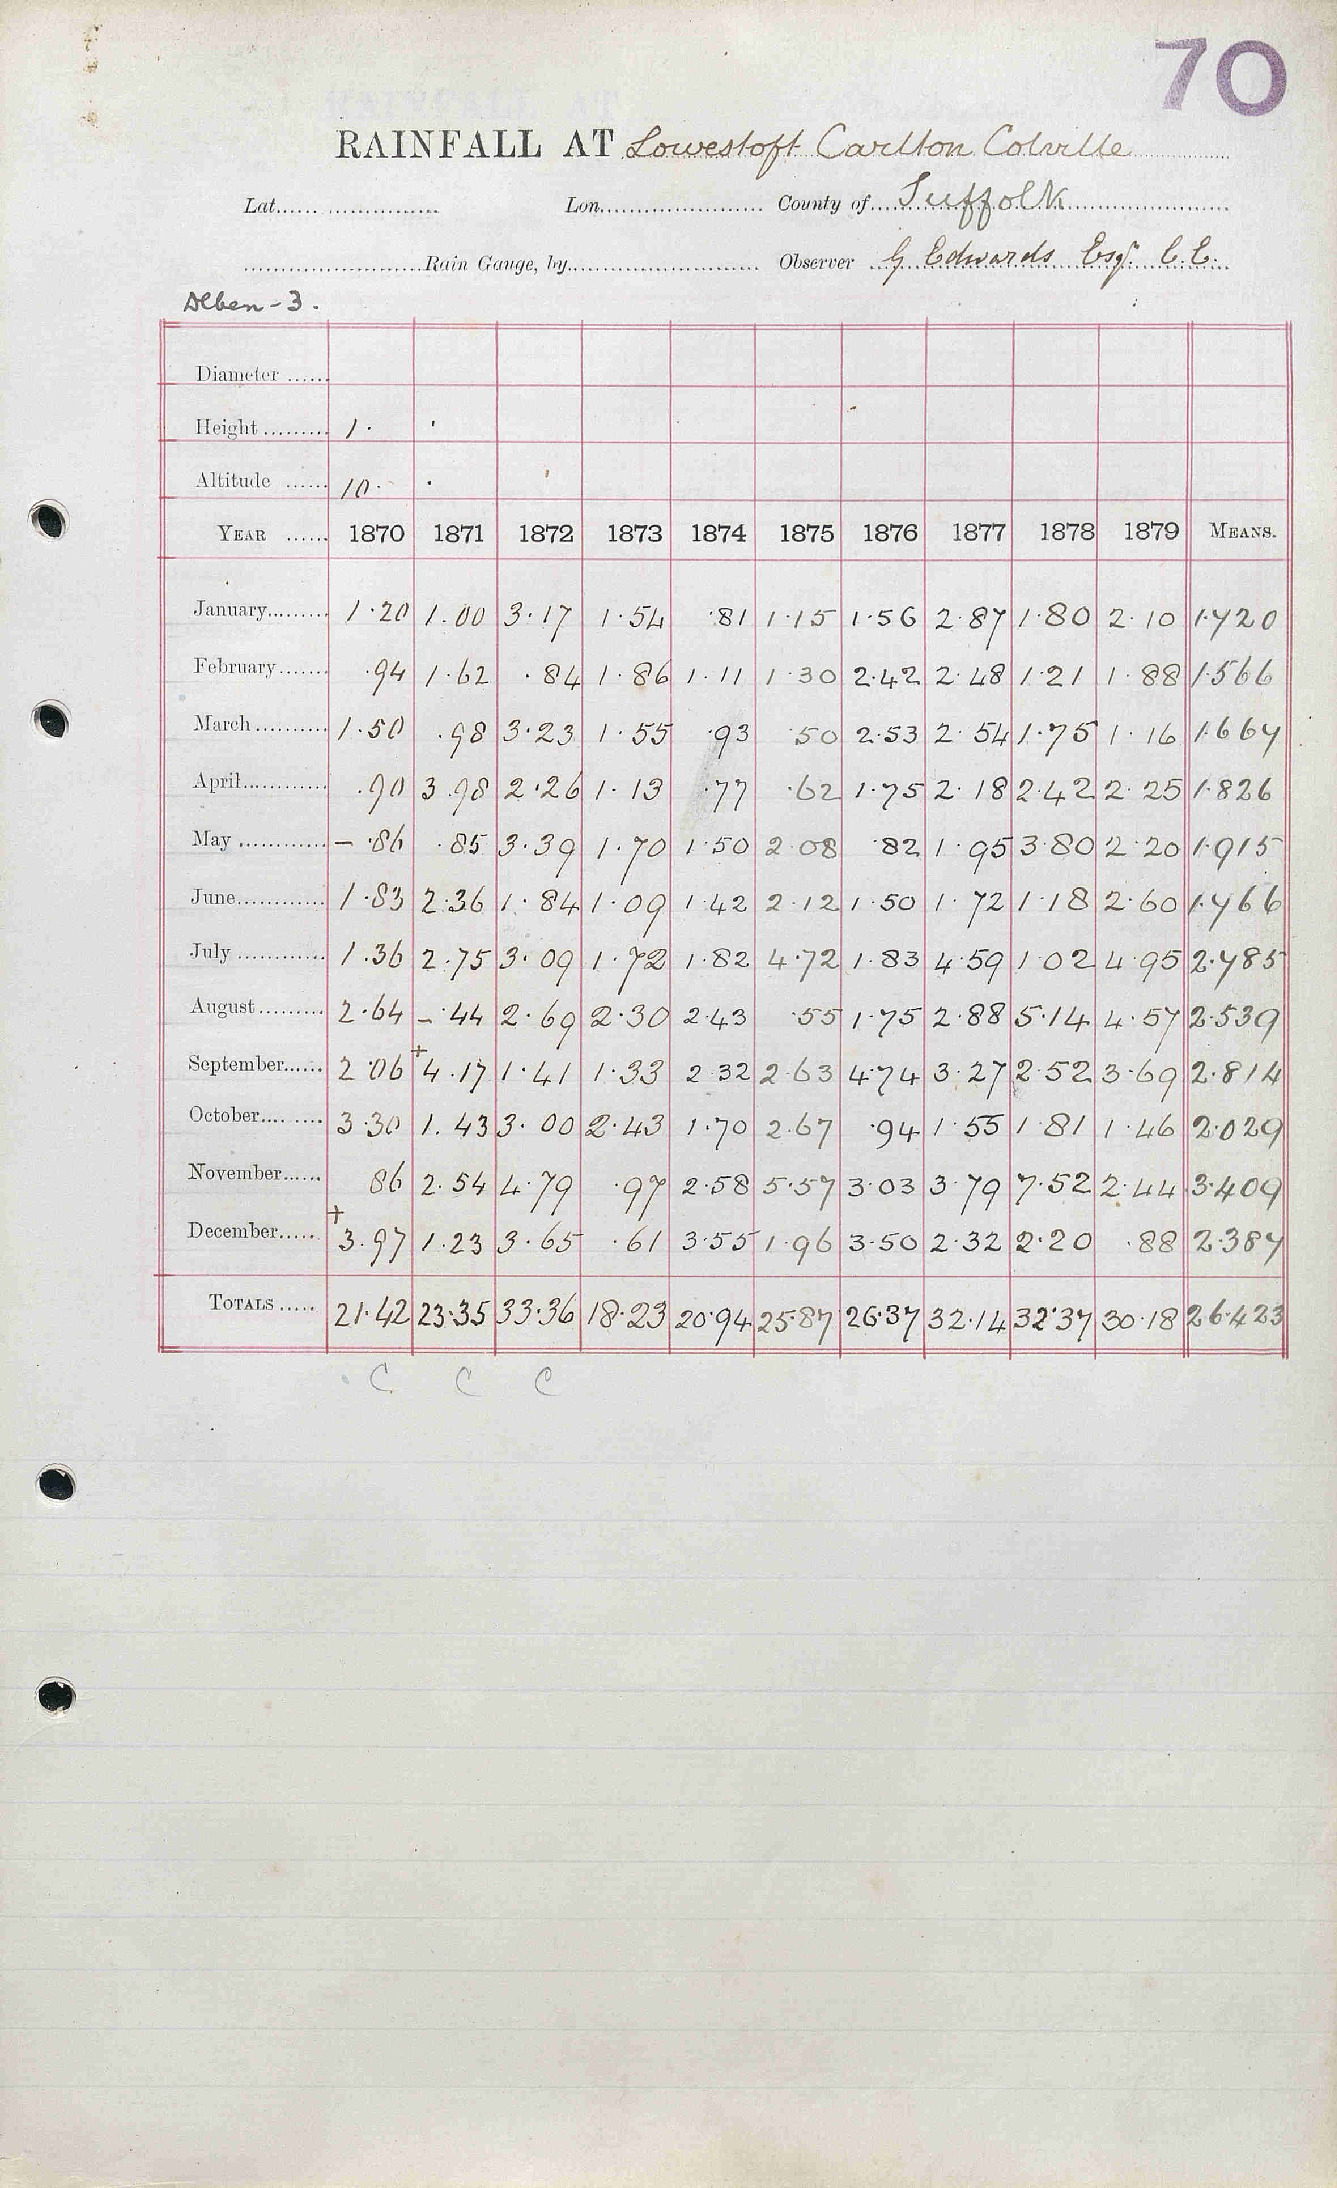 70
RAINFALL AT Lowestoft Carlton Colville
Lat. Lon. County of Suffolk
Rain Gauge, by Observer G Edwards Esqr. C.E.
Alben-3.
Diameter
Height 1.
Altitude 10.
YEAR 1870 1871 1872 1873 1874 1875 1876 1877 1878 1879 MEANS.
January 1.20 1.00 3.17 1.54 .81 1.15 1.56 2.87 1.80 2.10 1.720
February .94 1.62 .84 1.86 1.11 1.30 2.42 2.48 1.21 1.88 1.566
March 1.50 .98 3.23 1.55 .93 .50 2.53 2.54 1.75 1.16 1.667
April .90 3.98 2.26 1.13 .77 .62 1.75 2.18 2.42 2.25 1.826
May – .86 .85 3.39 1.70 1.50 2.08 .82 1.95 3.80 2.20 1.915
June 1.83 2.36 1.84 1.09 1.42 2.12 1.50 1.72 1.18 2.60 1.766
July 1.36 2.75 3.09 1.72 1.82 4.72 1.83 4.59 1.02 4.95 2.785
August 2.64 – .44 2.69 2.30 2.43 .55 1.75 2.88 5.14 4.57 2.539
September 2.06 + 4.17 1.41 1.33 2.32 2.63 4.74 3.27 2.52 3.69 2.814
October 3.30 1.43 3.00 2.43 1.70 2.67 .94 1.55 1.81 1.46 2.029
November 86 2.54 4.79 .97 2.58 5.57 3.03 3.79 7.52 2.44 3.409
December + 3.97 1.23 3.65 .61 3.55 1.96 3.50 2.32 2.20 .88 2.387
TOTALS 21.42 23.35 33.36 18.23 20.94 25.87 26.37 32.14 32.37 30.18 26.423
C C C